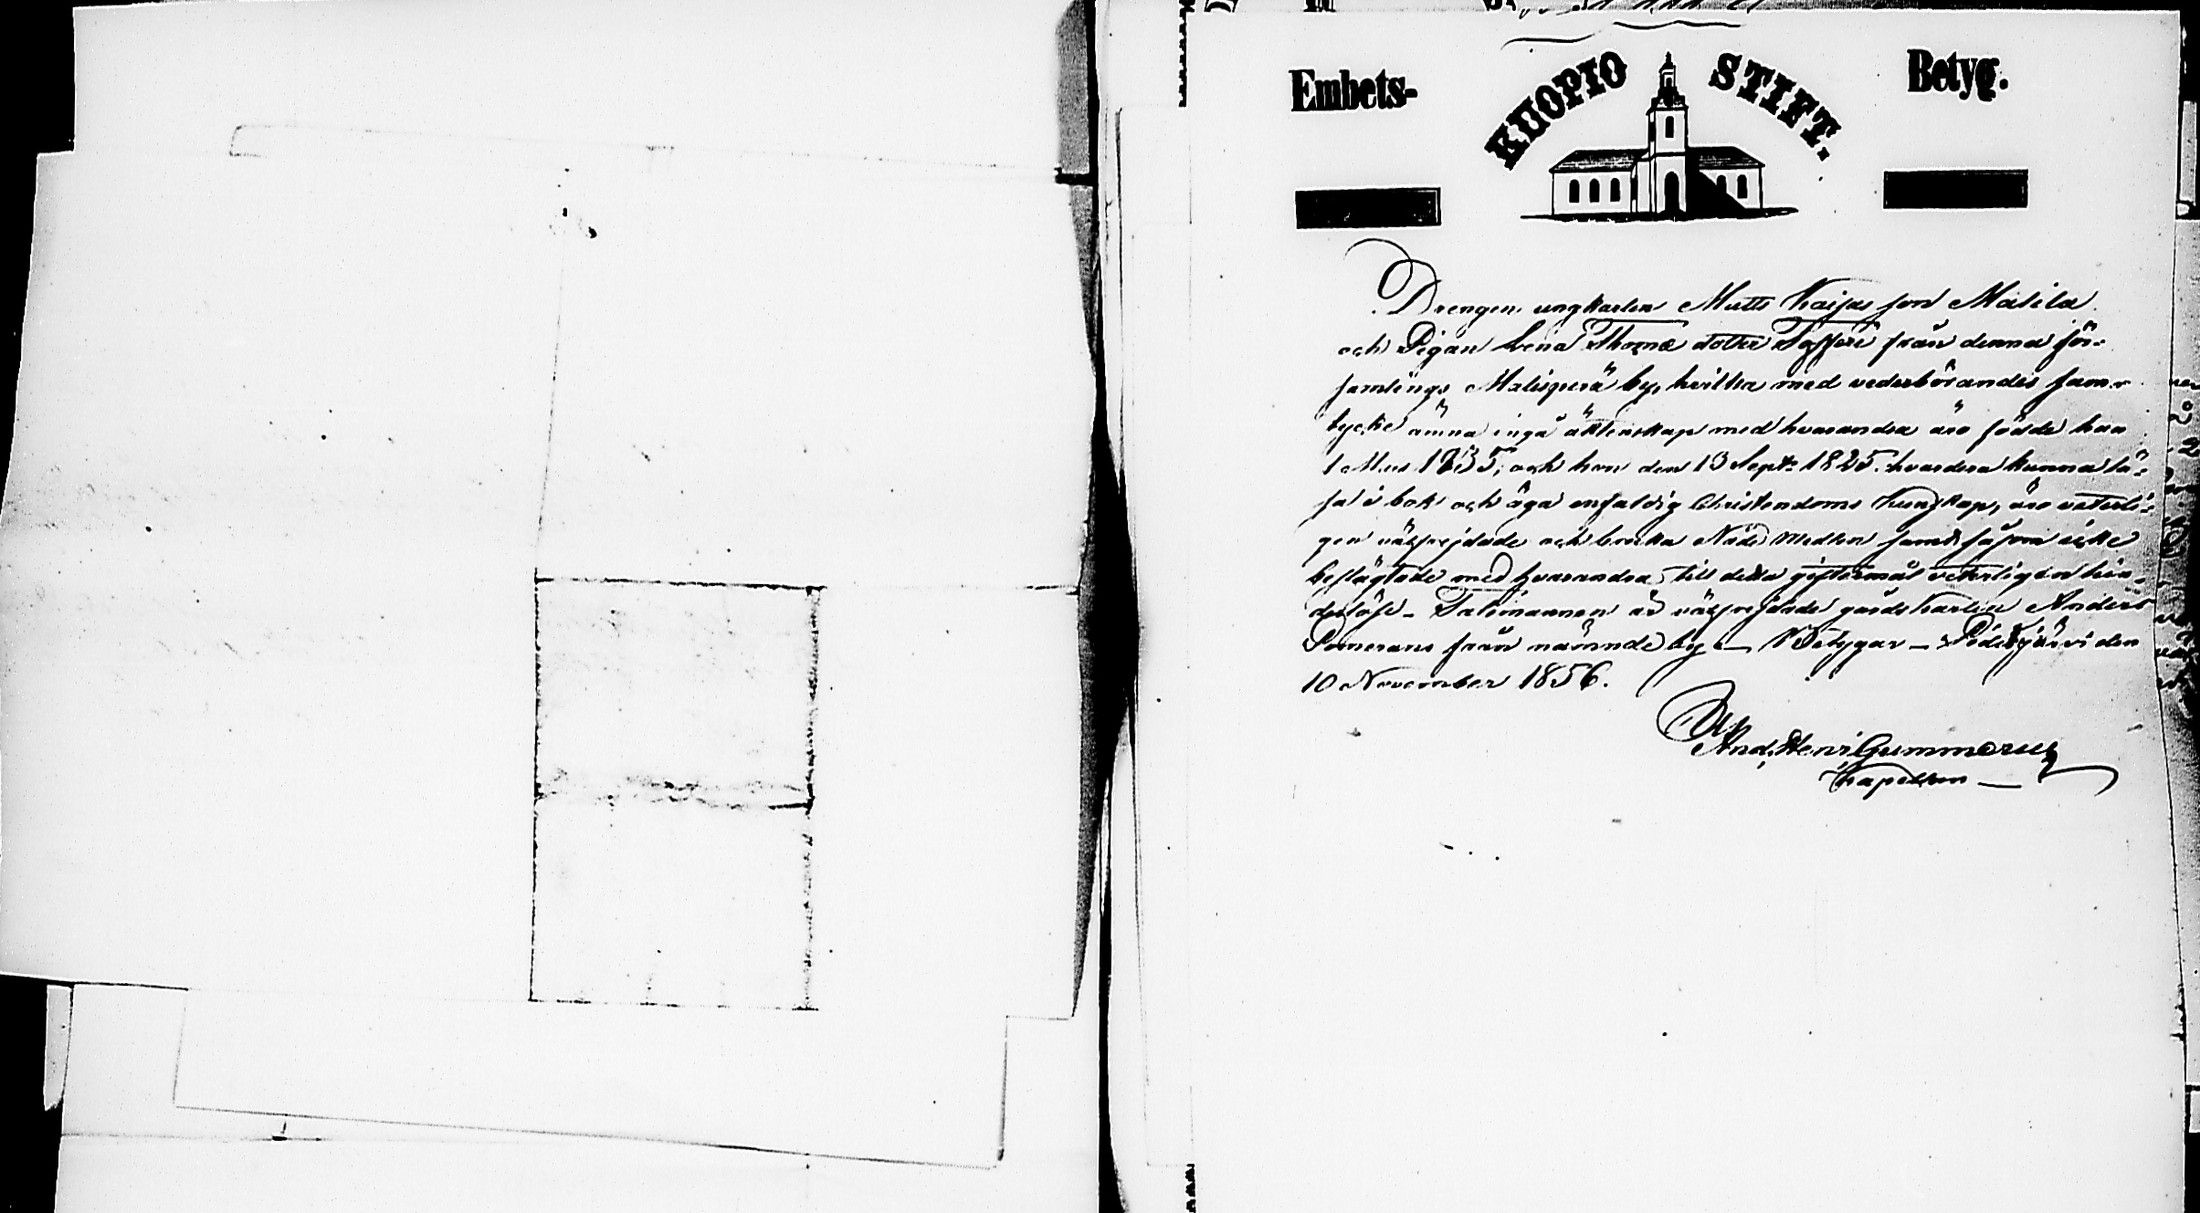 Embets- KUOPIO STIFT. Betyg.
Drengen ungkarlen Matts Kaijas son Matila
och Pigan Lena Thomæ dotter från denna för-
samlings by, hvilka med vederbörandes sam-
tycke ämna ingå äktenskap med hvarandra äro födde han
1835, och hon den 13 Sept. 1825. hvardera kunna lä-
sa i bok och äga enfaldig Christendoms kunskap, äro veterli-
gen välfrejdade och bruka Nåde medlen samt såsom icke
beslägtade med hvarandra till detta giftermål veterligen hin-
derlöse - Talemannen är välfrejdade gårdskarlen Anders
Pomerans från nämnde by - Betygar - Pudasjärvi den
10 November 1856.
And. Henr. Gummerus
Kapellan